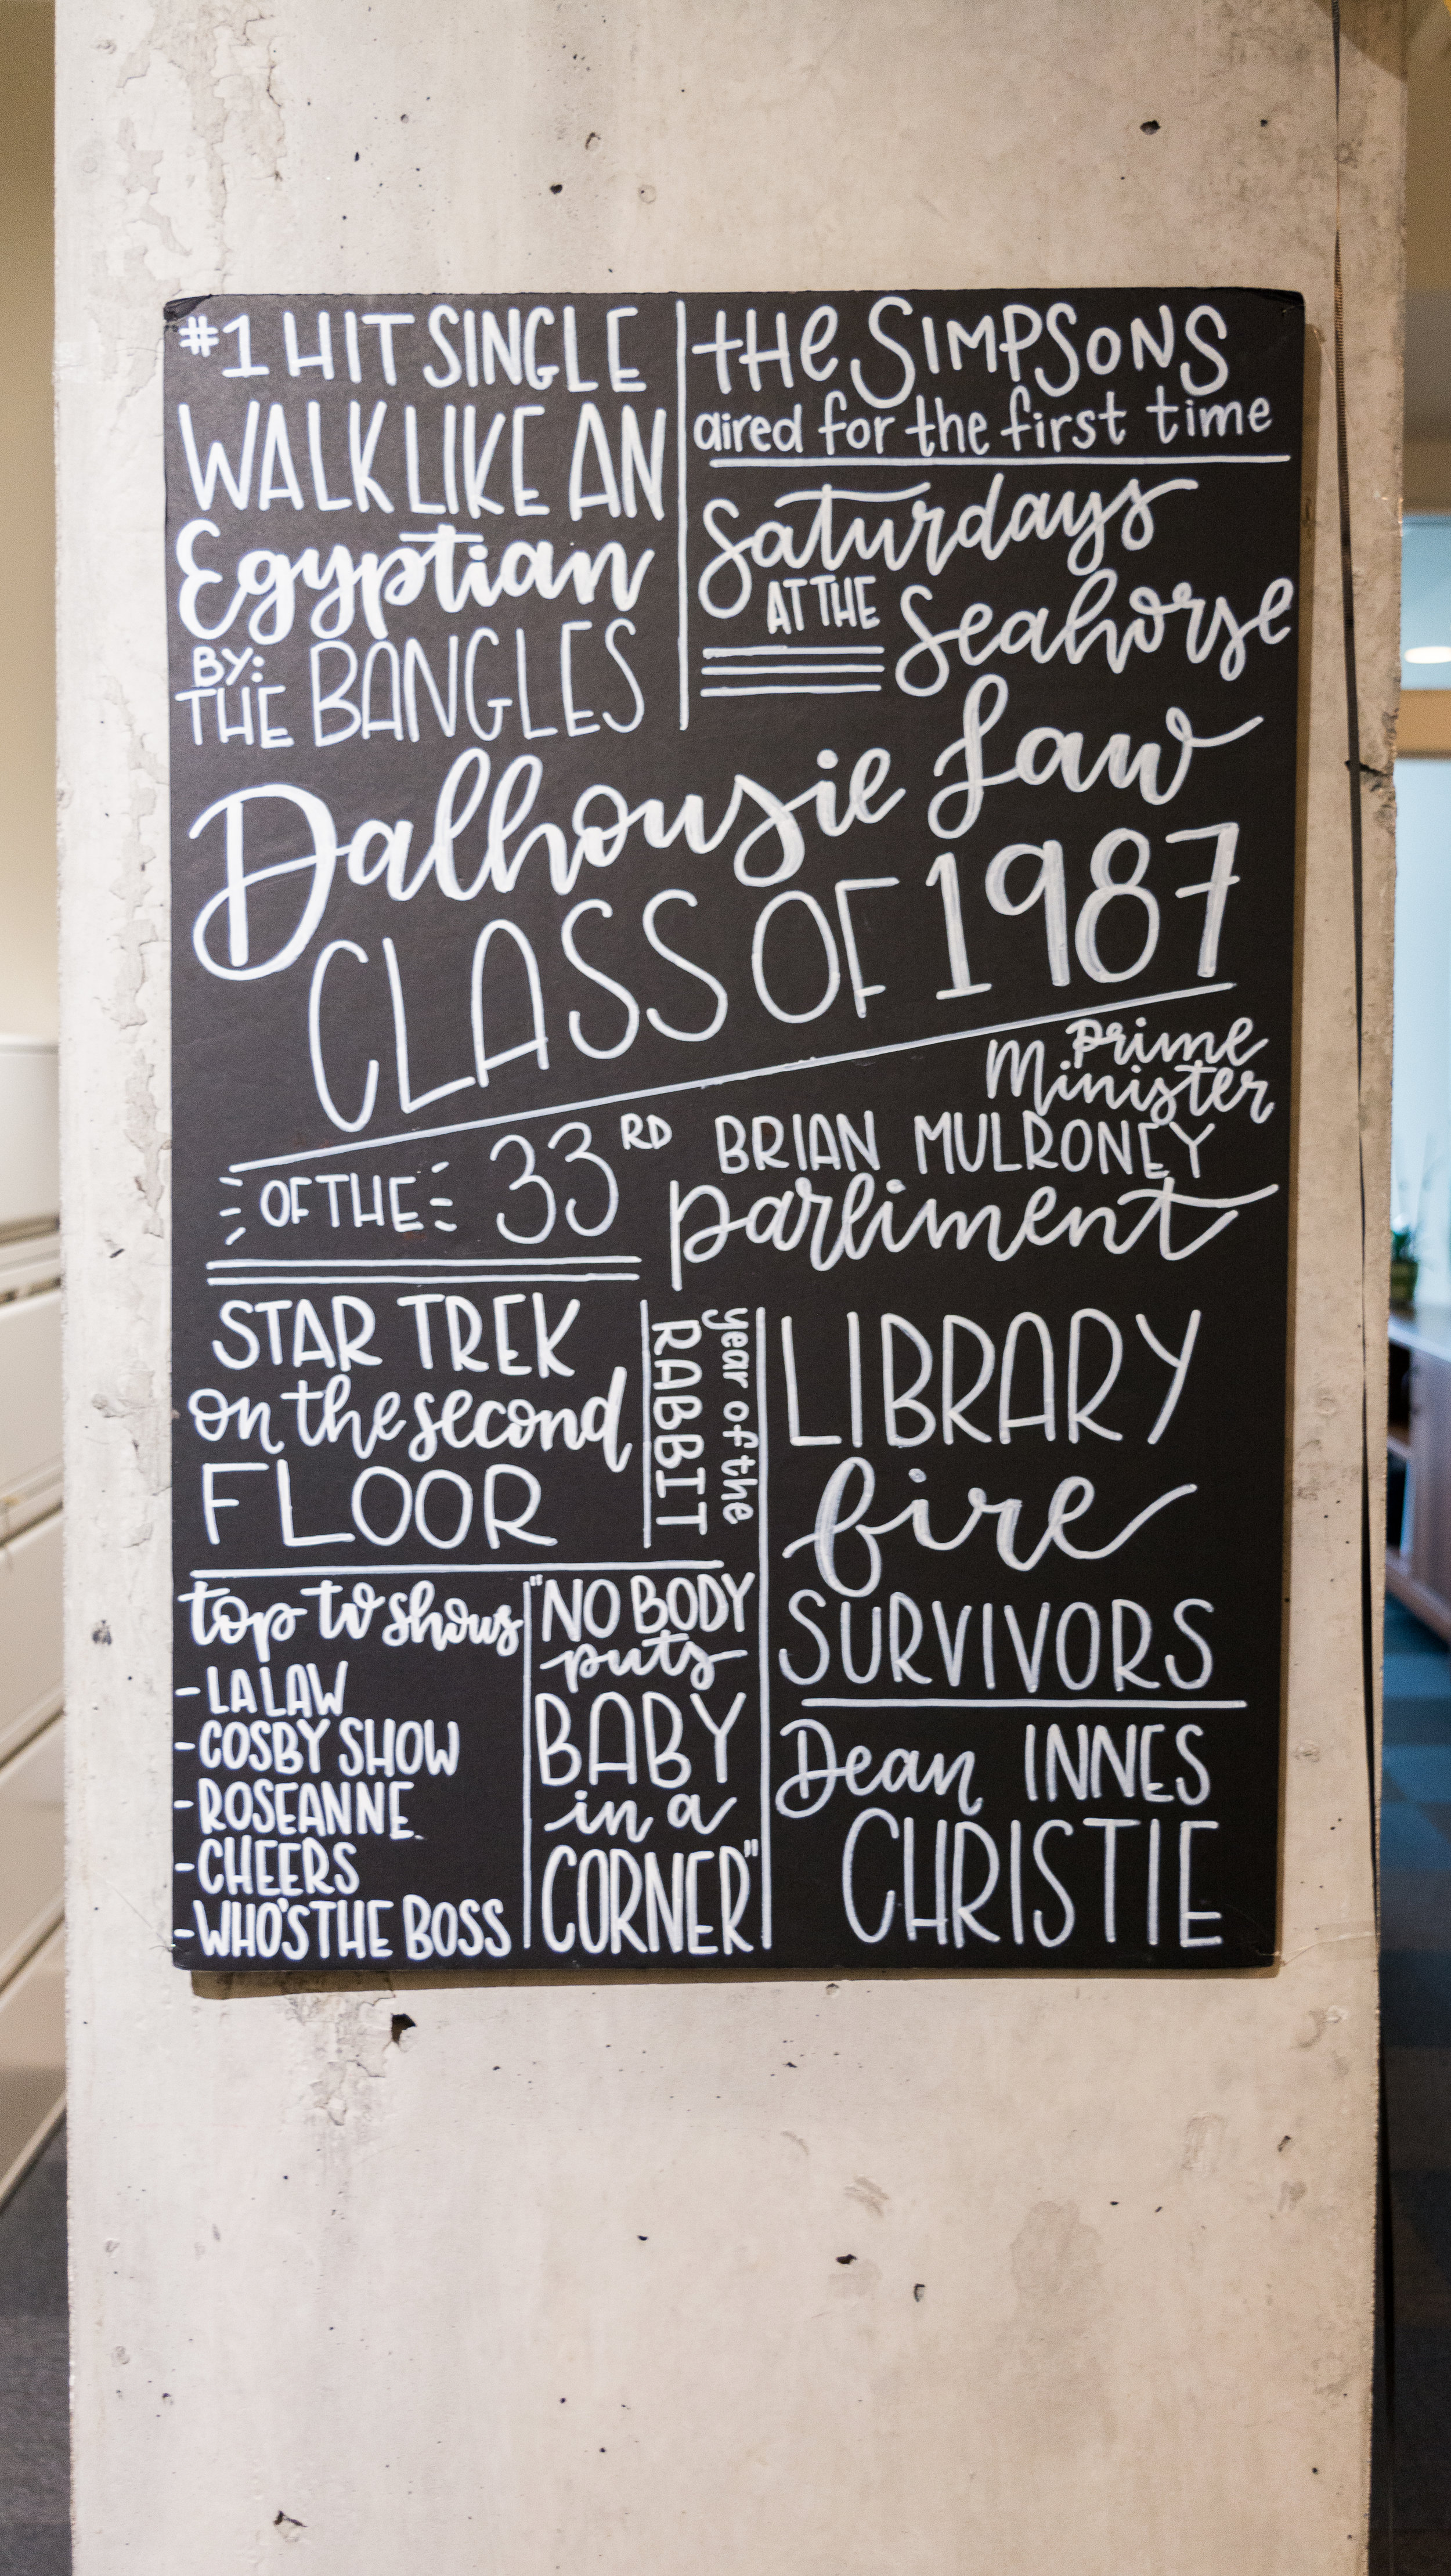 #1 HIT SINGLE
WALK LIKE AN
Egyptian
BY:
THE BANGLES
the SIMPSONS
aired for the first time
Saturdays
AT THE Seahorse
Dalhousie Law
CLASS OF 1987
Prime
Minister
BRIAN MULRONEY
OF THE 33RD parliment
STAR TREK
on the second
FLOOR
year of the
RABBIT
LIBRARY
fire
SURVIVORS
top tv shows
- LA LAW
- COSBY SHOW
- ROSEANNE
- CHEERS
- WHO'S THE BOSS
"NO BODY
puts
BABY
in a
CORNER"
Dean INNES
CHRISTIE